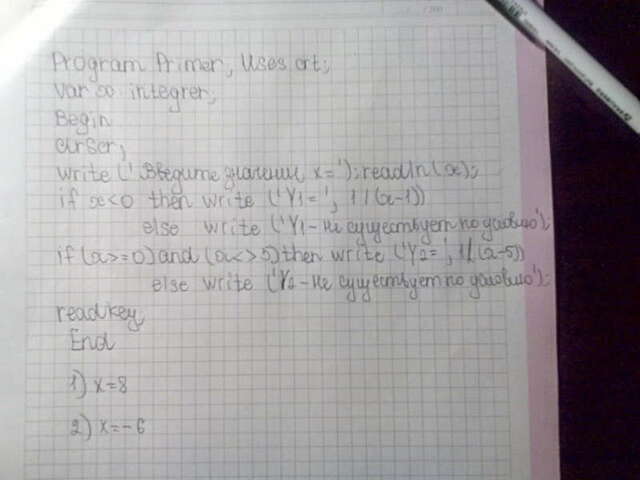 Program Primer; Uses crt;
Var x integrer;
Begin
clrscr;
write ('Введите значении x='); readln (x);
if x<0 then write ('Y1=', 1/(x-1))
else write ('Y1-не существует по условию');
if (x>=0) and (x<>5) then write ('Y2=', 1/(x-5))
else write ('Y2-не существует по условию');
readkey,
End
1) x=8
2) x=-6